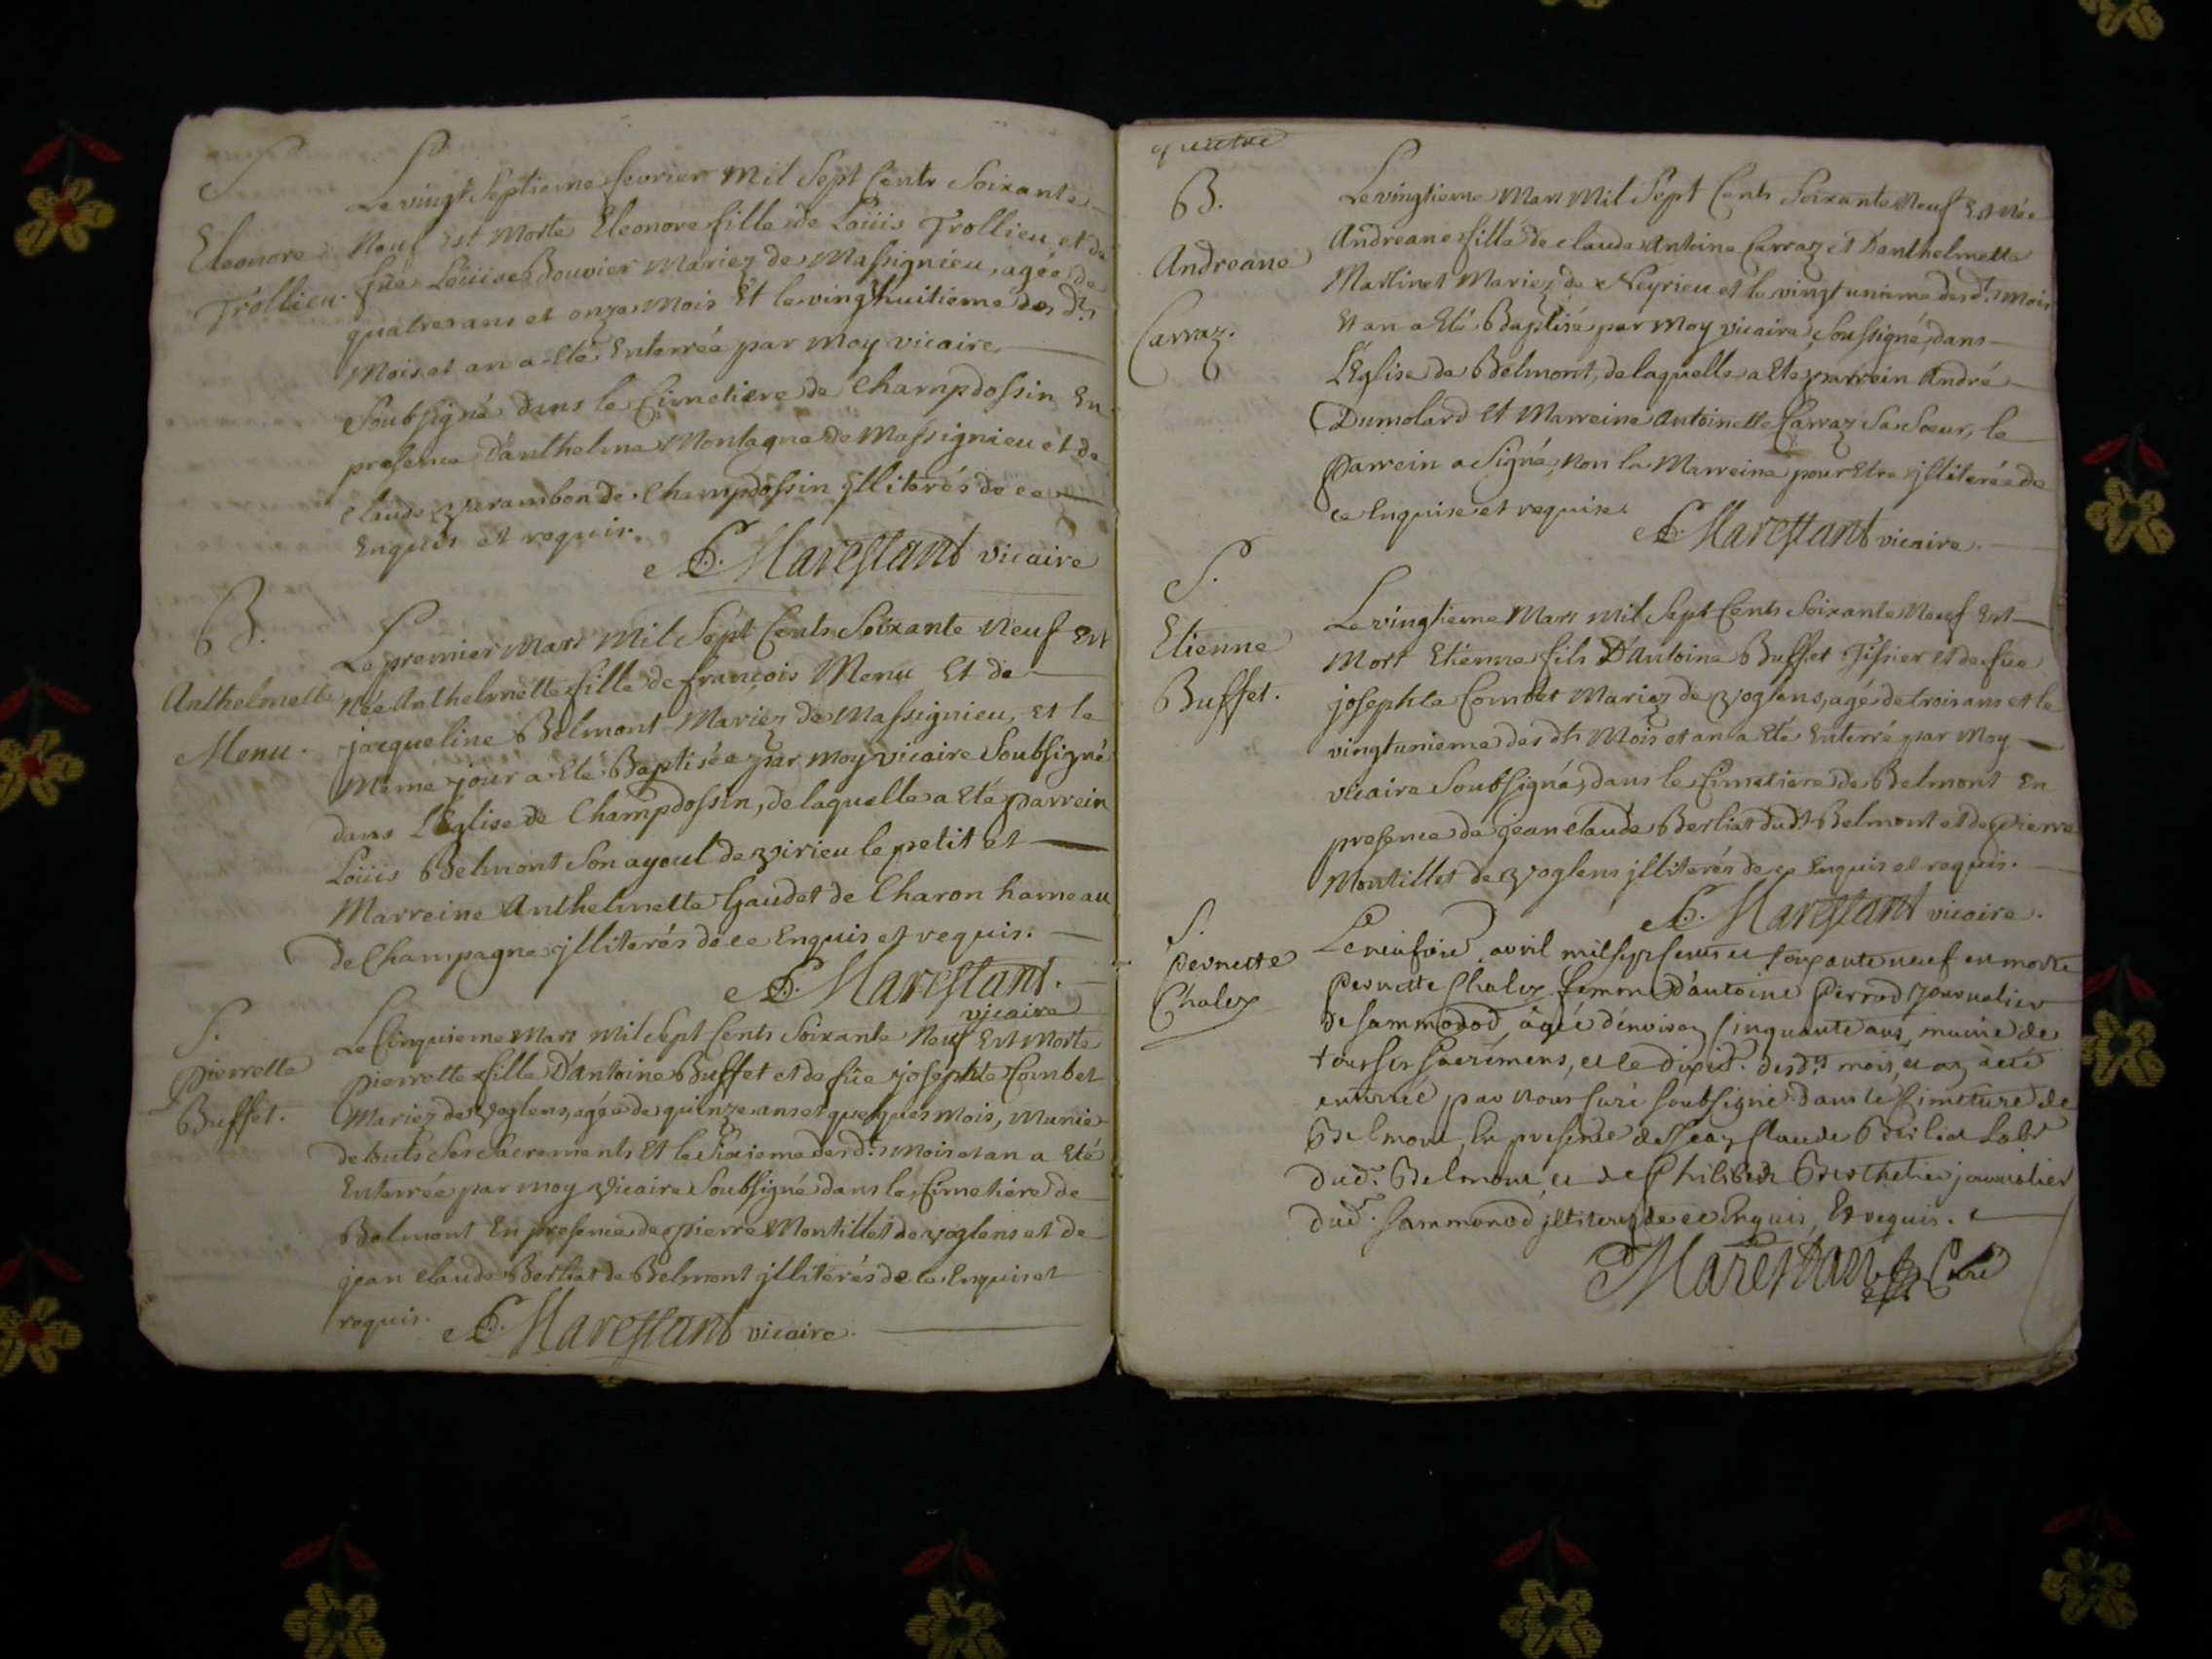 S
Eleonore
Trollieu.
Le vingt Septieme fevrier Mil Sept Cents Soixante
Neuf Est Morte Eleonore fille de Loüis Trollieu et de
füe Loüise Bouvier Mariez de Massignieu, agée de
quatre ans et onze Mois Et le vingthuitieme des dts
Mois et an a Eté Enterrée par Moy vicaire
Soubsigné dans le Cimetiere de Champdossin En
presence D'anthelme Montagne de Massignieu et de
Claude varambon de Champdossin jlliterés de ce
Enquis et requis.
Marestant vicaire
B.
Anthelmette
Menu.
Le premier Mars Mil Sept Cents Soixante Neuf Est
Née Anthelmette fille de françois Menu Et de
jacqueline Belmont Mariez de Massignieu, et le
Même jour a Eté Baptisée par Moy vicaire Soubsigné
dans L'Eglise de Champdossin, de laquelle a Eté parrein
Loüis Belmont Son ayoul de virieu le petit et
Marreine Anthelmette Gaudet de Charon hameau
de Champagne jlliterés de ce Enquis et requis.
Marestant.
vicaire
S.
pierrette
Buffet.
Le Cinquieme Mars Mil Sept Cents Soixante Neuf Est Morte
pierrette fille D'antoine Buffet et de füe josephte Combet
Mariez de voglens, agée de quinze ans et quelques Mois, Munie
de touts Ses Sacrements Et le Sixieme des dts Mois et an a Eté
Enterrée par moy vicaire Soubsigné dans le Cimetiere de
Belmont En presence de pierre Montillet de voglens et de
jean Claude Berliat de Belmont jlliterés de ce Enquis et
requis.
Marestant vicaire.
quatre
B.
Andreane
Carraz.
Le vingtieme Mars Mil Sept Cents Soixante Neuf Est Née
Andreane fille de Claude Antoine Carraz et D'anthelmette
Martinet Mariez de Neyrieu et le vingt unieme des dts Mois
Et an a Eté Baptisée par Moy vicaire Soussigné, dans
L'Eglise de Belmont, de laquelle a Eté parrein André
Dumolard Et Marreine Antoinette Carraz Sa Soeur, le
Parrein a Signé, Non la Marreine pour Etre jlliterée de
ce Enquise et requise.
Marestant vicaire.
S.
Etienne
Buffet.
Le vingtieme Mars Mil Sept Cents Soixante Neuf Est
Mort Etienne fils D'Antoine Buffet Tissier et de füe
josephte Combet Mariez de voglens, agé de trois ans et le
vingtunieme des dts Mois et an a Eté Enterré par Moy
vicaire Soubsigné, dans le Cimetiere de Belmont En
presence de jean Claude Berliat dudt Belmont et de pierre
Montillet de voglens jlliterés de ce Enquis et requis.
Marestant vicaire.
S.
Pernette
Chaley
avril mil sept cents et soixante neuf est morte
Pernette Chaley femme d'antoine Perrod journalier
de Sammonod, agée d'environ Cinquante ans, munie de
tous ses Sacremens, et le des dts mois, et an a eté
enterrée par nous Curé Soubsigné dans le Cimetiere de
Belmont, En presence de Jean Claude Berliat Labr
dud. Belmont, et de Philibert Berthelier journalier
dud. Sammonod jlliterez de ce Enquis, Et requis.
Marestant Curé